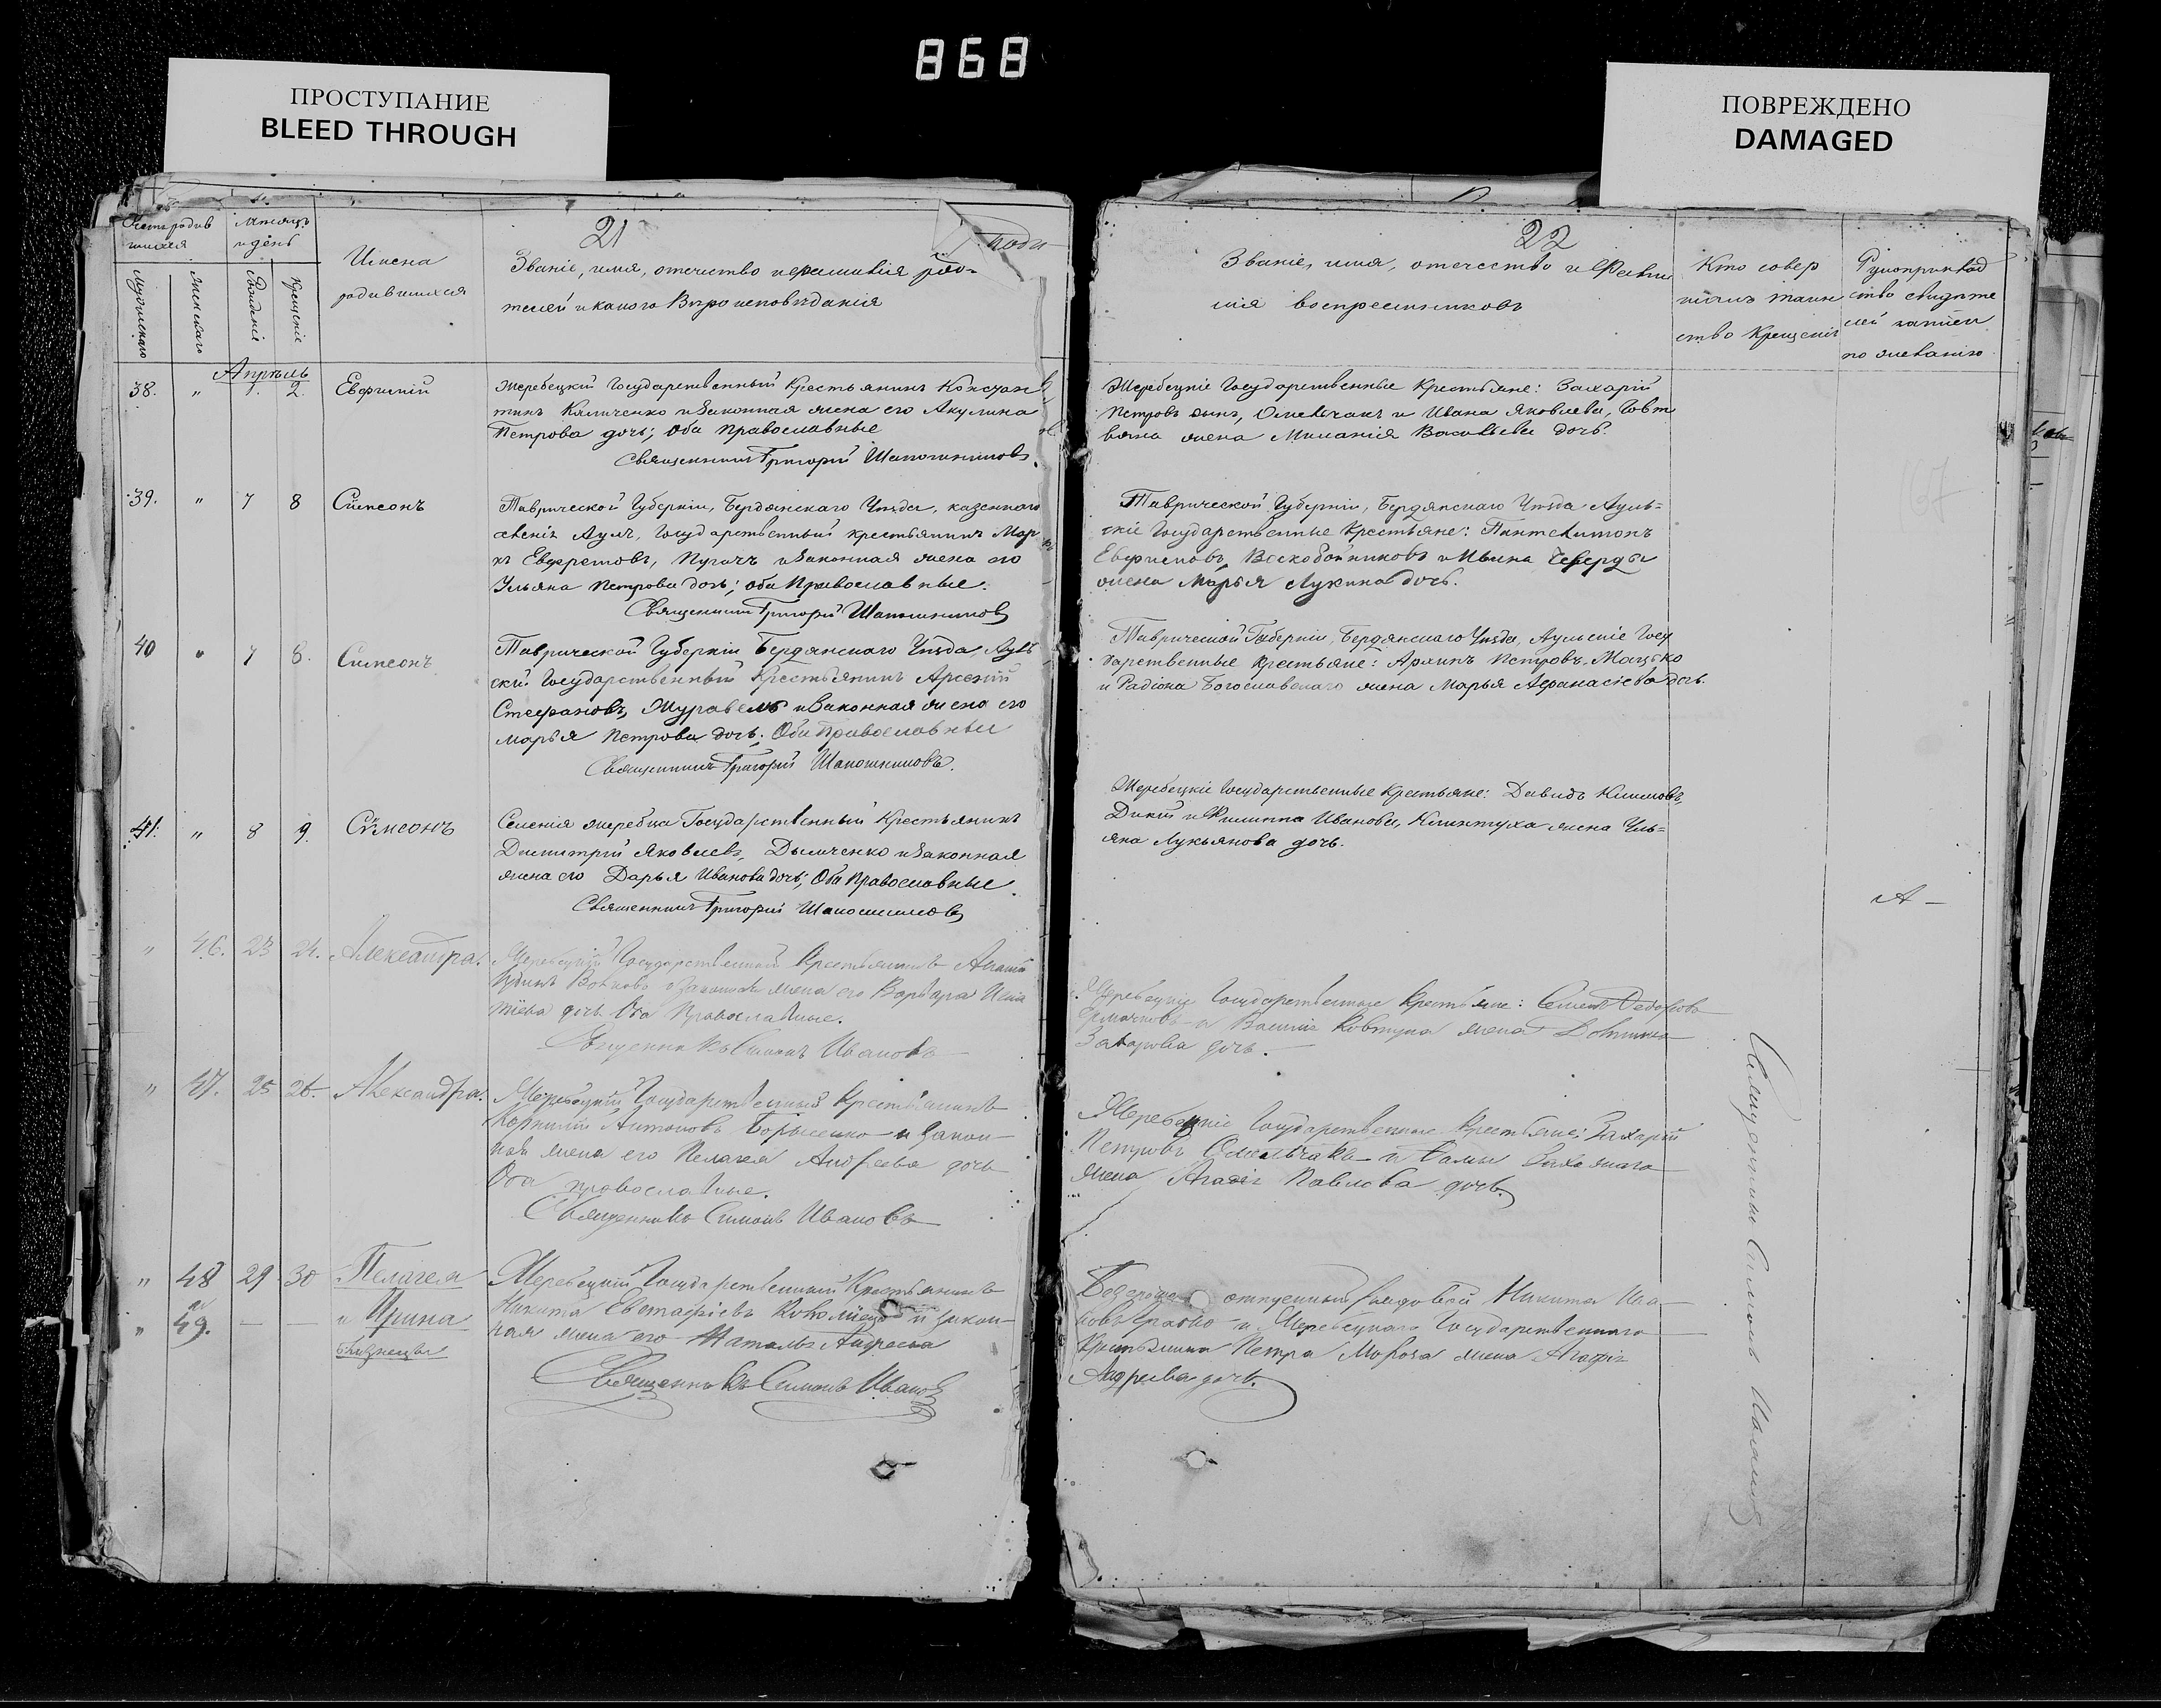 868
ПРОСТУПАНИЕ
BLEED THROUGH
ПОВРЕЖДЕНО
DAMAGED
21
Имена
родившихся
Званіе, имя, отечество и фамилія роди-
телей и какого Вѣроисповѣданія
Мужескаго
Женскаго
Рожденіе
Крещеніе
мѣсяцъ
и день
Апрѣль
38. " 1. 2. Евфимій
Жеребецкій Государственный Крестьянинъ Констан
тинъ Кяличенко и законная жена его Акулина
Петрова дочь; оба православные
Священникъ Григорій Шапошниковъ.
39. " 7 8 Симеонъ
Таврической Губерніи, Бердянскаго Уѣзда, казеннаго
селенія Аулъ, Государственный крестьянинъ Мар
къ Евфремовъ, Пугачъ и законная жена его
Ульяна Петрова дочь; оба Православные.
Священникъ Григорій Шапошниковъ
40 " 7 8. Симеонъ
Таврической Губерніи Бердянскаго Уѣзда, Ауль
скій Государственный Крестьянинъ Арсеній
Стефановъ, Журавель и законная жена его
Марья Петрова дочь; Оба Православные
Священникъ Григорій Шапошниковъ.
41. " 8 9. Симеонъ
Селенія Жеребца Государственный Крестьянинъ
Димитрій Яковлевъ, Дымченко и законная
жена его Дарья Иванова дочь; Оба Православные
Священникъ Григорій Шапошниковъ
" 46. 23 24. Александра.
Жеребецкій Государственный Крестьянинъ
Волковъ и законная жена его Варвара
дочь Оба Православные.
Священникъ Симонъ Ивановъ
" 47. 25 26. Александра.
Жеребецкій Государственный Крестьянинъ
Корнилій Антоновъ Борысенко и закон-
ная жена его Пелагея Андреева дочь
Оба православные.
Священникъ Симонъ Ивановъ
" 48 29 30 Пелагея
" 49. — — и Ирина
близнецы
Жеребецкій Государственный Крестьянинъ
Никита Евстафіевъ и закон-
ная жена его Наталья Андреева
Священникъ Симонъ Ивановъ
22
Званіе, имя, отечество и Фами
лія воспреемниковъ
Кто совер
шилъ таин
ство Крещенія
Рукоприклад
ство свидѣте
лей записи
по желанію
Жеребецкіе Государственные Крестьяне: Захарій
Петровъ сынъ, Омельчакъ и Ивана Яковлева, Товт
вяна жена Миланія Васильева дочь.
Таврической Губерніи, Бердянскаго Уѣзда Ауль-
скіе Государственные Крестьяне: Пантелимонъ
Евфимовъ, Воскобойниковъ и Ивана Чеверды
жена Марья Лукина дочь.
Таврической Губерніи, Бердянскаго Уѣзда, Аульскіе Госу
дарственные Крестьяне: Архипъ Петровъ, Мацько
и Радіона Богославскаго жена Марья Афанасіева дочь.
Жеребецкіе Государственные Крестьяне: Давидъ Климовъ,
Дикій и Филиппа Иванова, Клинтуха жена Уль-
яна Лукьянова дочь.
Жеребецкіе Государственные Крестьяне: Федоровъ
и Василія Ковтуна жена
Захарова дочь.
Жеребецкіе Государственные Крестьяне: Захарій
Петровъ Омельчакъ и
жена Агафія Павлова дочь.
отпускный рядовой Никита Ива-
новъ и Жеребецкаго Государственнаго
Крестьянина Петра Мороза жена Агафія
Андреева дочь.
Священникъ Симонъ Ивановъ